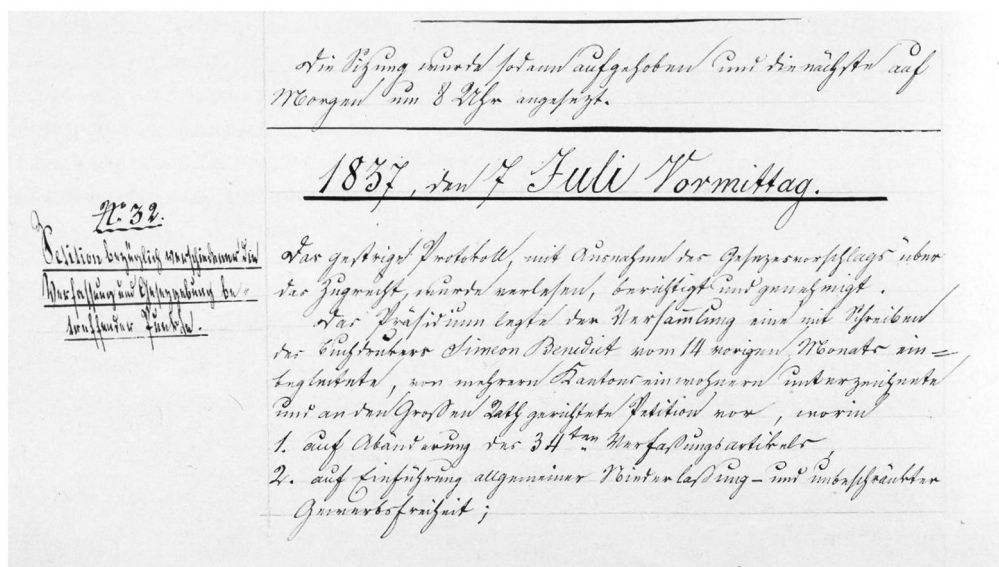 Die Sitzung wurde sodann aufgehoben und die nächste auf
Morgen um 8 Uhr angesezt.
1837, den 7 Juli Vormittag.
No. 32.
Petition bezüglich verschiedener die
Verfassung und Gesezgebung be-
treffender Punkte.
Das gestrige Protokoll, mit Ausnahme des Gesezesvorschlags über
das Zugrecht, wurde verlesen, berichtigt und genehmigt.
Das Präsidium legte der Versammlung eine mit Schreiben
des Buchdrukers Simeon Benedict vom 14 vorigen Monats ein=
begleitete, von mehrern Kantonseinwohnern unterzeichnete
und an den Großen Rath gerichtete Petition vor, worin
1. auf Abänderung des 34ten Verfaßungsartikels,
2. auf Einführung allgemeiner Niederlaßung- und unbeschränkter
Gewerbsfreiheit;